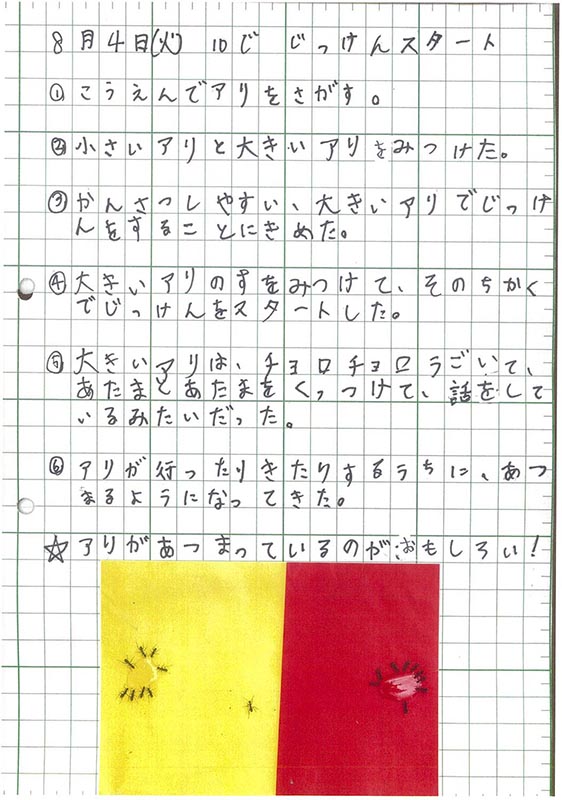 8月4日(火) 10じ じっけんスタート
①こうえんでアリをさがす。
②小さいアリと大きいアリをみつけた。
③かんさつしやすい、大きいアリでじっけ
んをすることにきめた。
④大きいアリのすをみつけて、そのちかく
でじっけんをスタートした。
⑤大きいアリは、チョロチョロうごいて、
あたまとあたまをくっつけて、話をして
いるみたいだった。
⑥アリが行ったりきたりするうちに、あつ
まるようになってきた。
☆アリがあつまっているのがおもしろい!